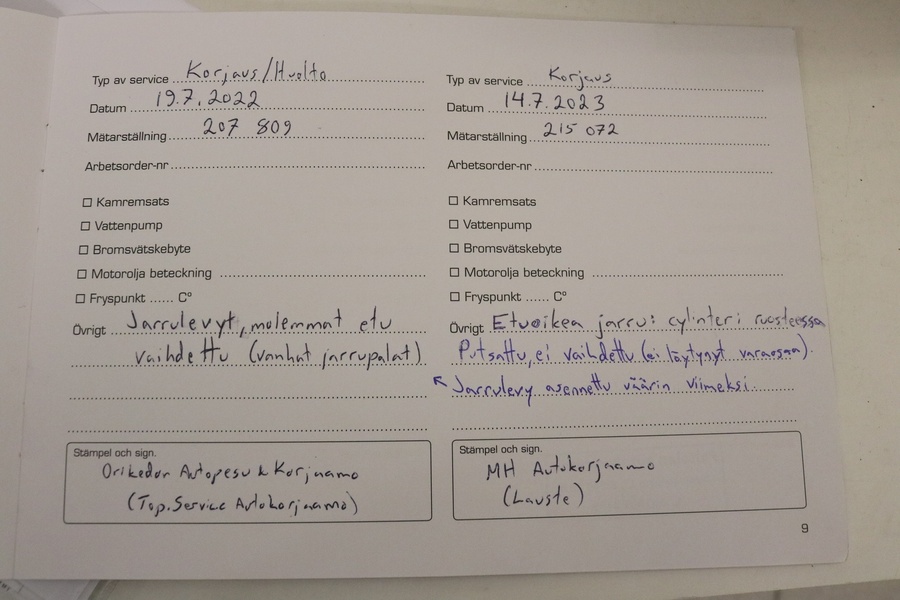 Typ av service Korjaus/Huolto
Datum 19.7.2022
Mätarställning 207 809
Arbetsorder-nr
Kamremsats
Vattenpump
Bromsvätskebyte
Motorolja beteckning
Fryspunkt ...... C°
Övrigt Jarrulevyt, molemmat etu
vaihdettu (vanhat jarrupalat)
Stämpel och sign.
Orikedon Autopesu & Korjaamo
(Top.Service Autokorjaamo)
Typ av service Korjaus
Datum 14.7.2023
Mätarställning 215 072
Arbetsorder-nr
Kamremsats
Vattenpump
Bromsvätskebyte
Motorolja beteckning
Fryspunkt ...... C°
Övrigt Etuoikea jarru: cylinteri ruosteessa
Putsattu, ei vaihdettu (ei löytynyt varaosaa).
↖ Jarrulevy asennettu väärin viimeksi.
Stämpel och sign.
MH Autokorjaamo
(Lauste)
9